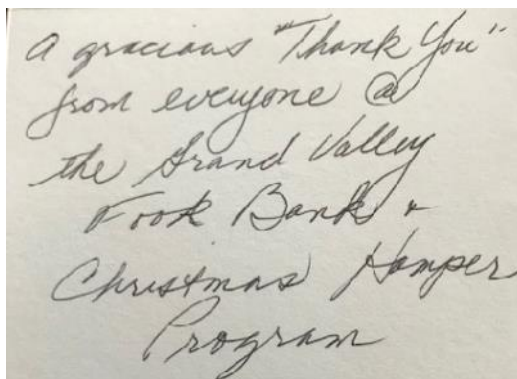 a gracious "Thank You"
from everyone @
the Grand Valley
Food Bank &
Christmas Hamper
Program